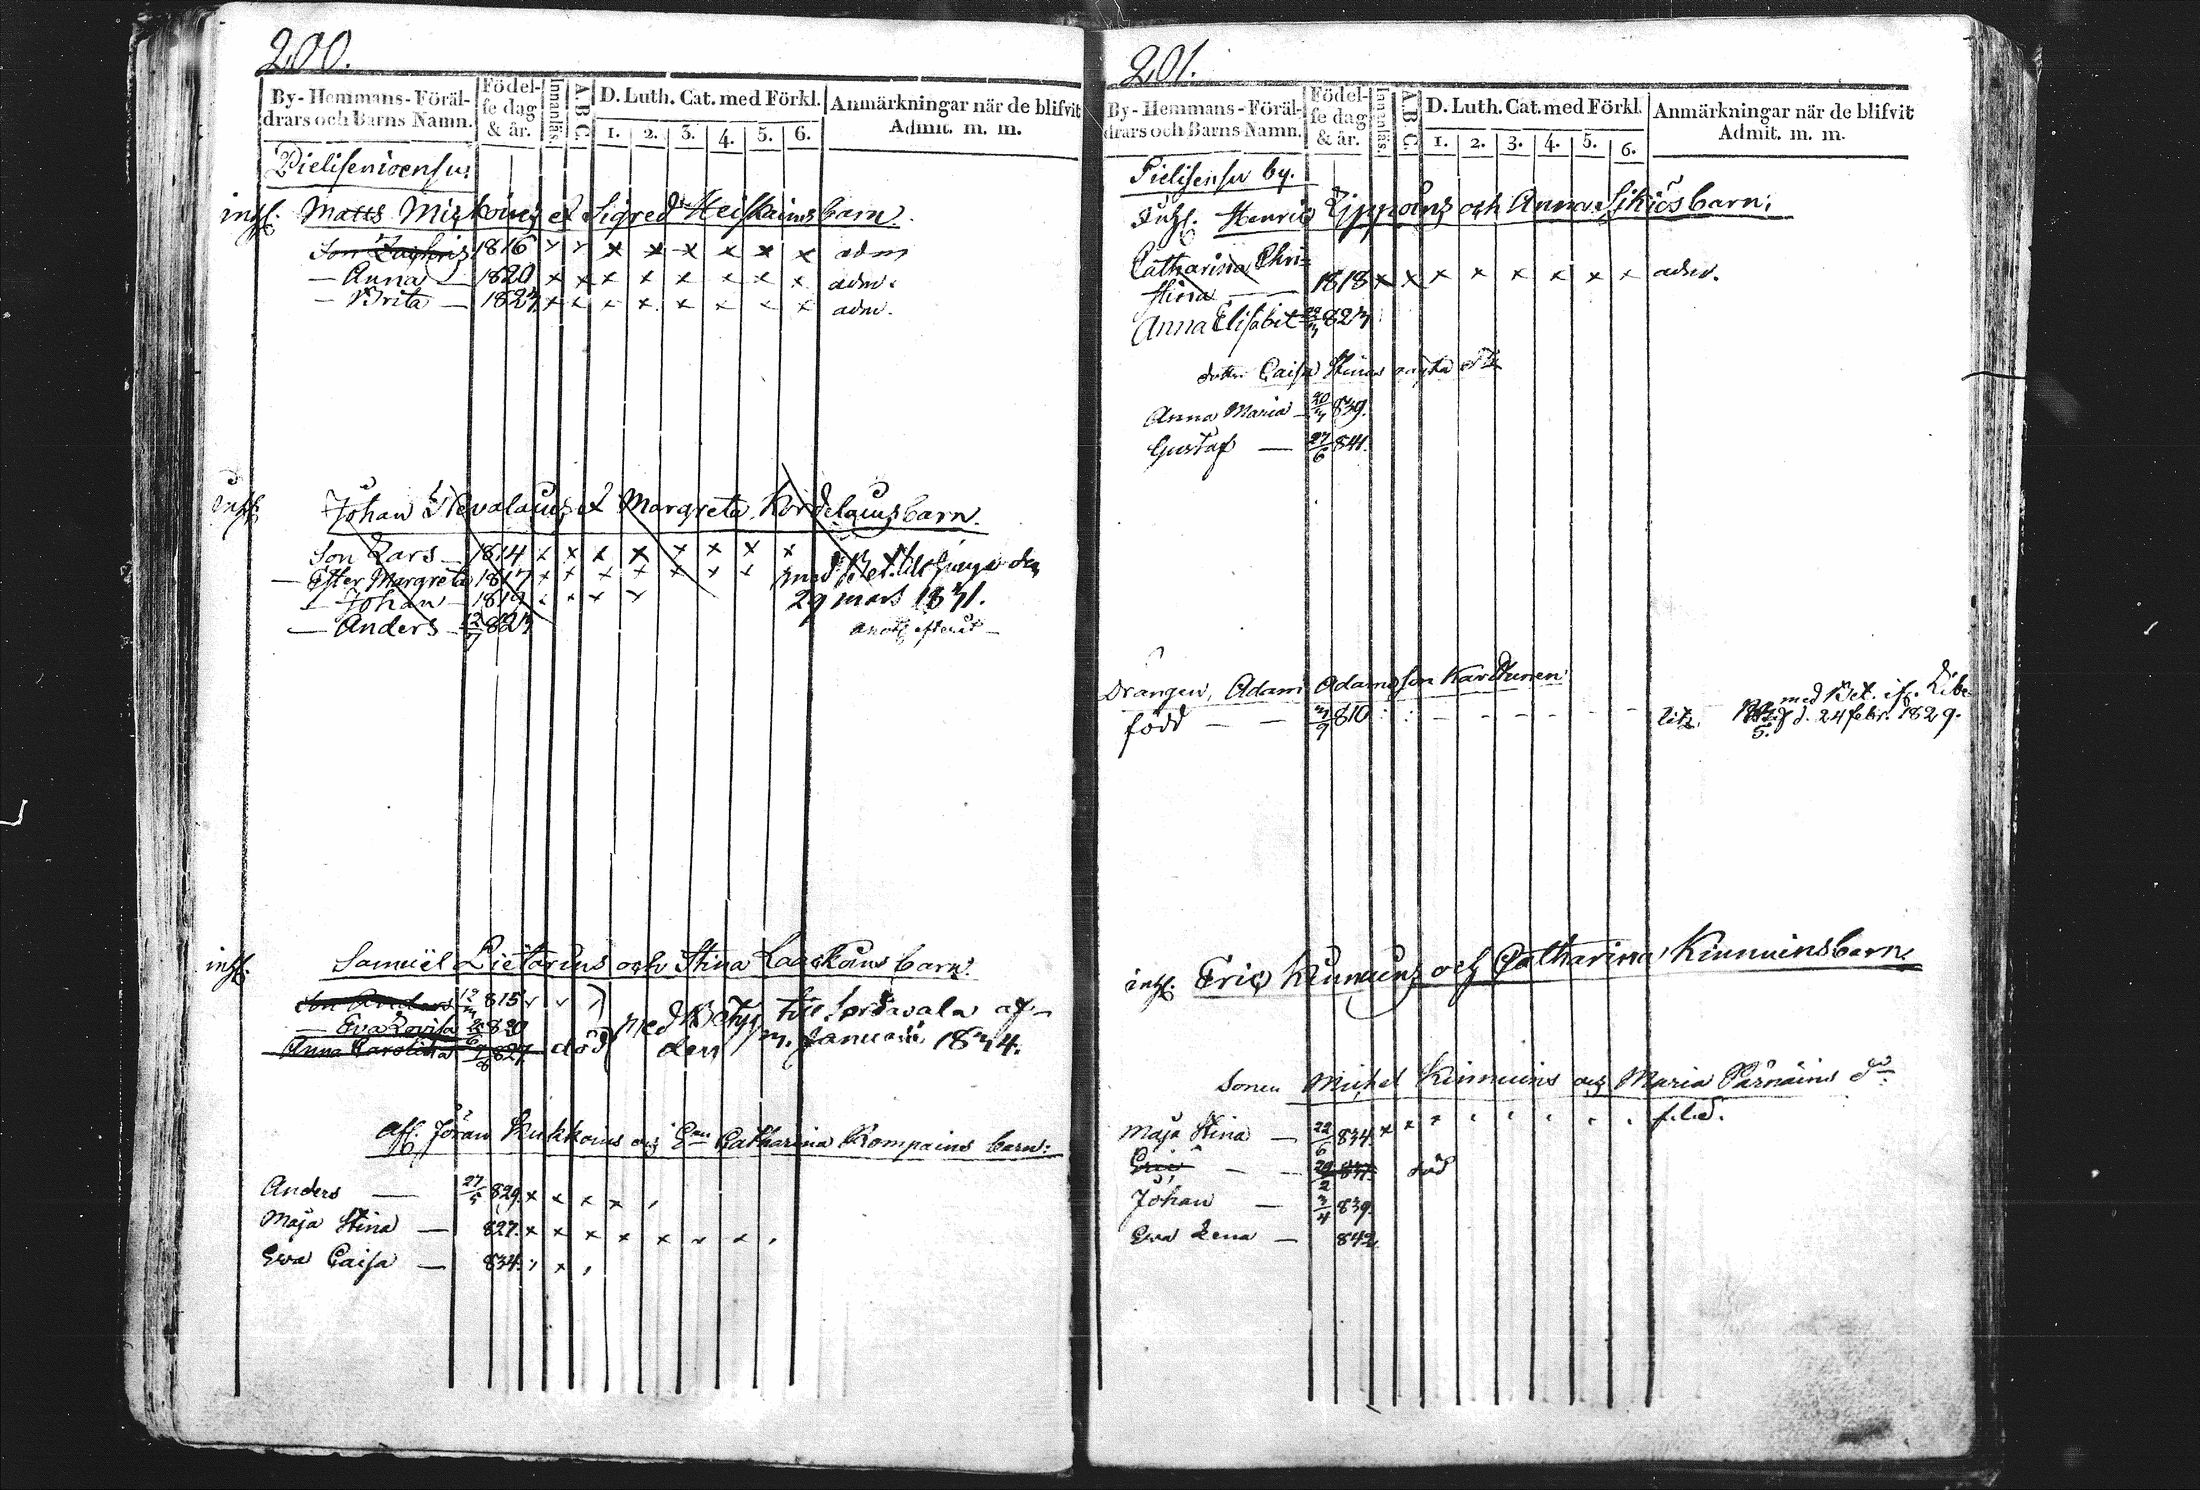 200.
By-Hemmans-Föräl-drars och Barns Namn. Födel-se dag & år. Innanläs. A.B.C. D. Luth. Cat. med Förkl. 1. 2. 3. 4. 5. 6. Anmärkningar när de blifvit Admit. m. m.
Pielisensuu
inhs. Matts Mickoins et Sigred Heiskains barn.
Son Zachris 1816 x x x x x x x x adm
— Anna — 1820 x x x x x x x x adm.
— Brita — 1823 x x x x x x x x adm.
inhs. Johan Nevalains et Margreta Kordelains barn.
Son Lars — 1814 x x x x x x x x
— Margreta 1817 x x x x x x x med Bet.
— Johan — 1819 29 mars 1831.
— Anders — 12/7 823
inhs. Samuel Lietarins och Stina Laaskains barn.
Son Anders 815
— Eva Lovisa 820 med Betyg till Sordavala af
Anna Carolina 827 död den 3. Januarii 1834.
Jöran Kukkoins och Catharina Kompains barn:
Anders — 27/5 829. x x x x
Maja Stina — 827. x x x x x
Eva Caisa — 834.
201.
By-Hemmans-Föräl-drars och Barns Namn. Födel-se dag & år. Innanläs. A.B.C. D. Luth. Cat. med Förkl. 1. 2. 3. 4. 5. 6. Anmärkningar när de blifvit Admit. m. m.
Pielisensu by.
Inhs. Henric Lippoins och Anna Sikiös barn.
Catharina Chri-
stina — 1818 x x x x x x x x adm.
Anna Elisabet 823
dottr. Caisa Stinas
Anna Maria — 839.
Gustaf — 27/6 841.
Drängen, Adam Adamsson Karttunen
född — — 3/9 810 med Bet. ifr. Libe-
litz d. 24 febr. 1829.
inhs. Eric Kinnuins och Catharina Kinnuins barn.
Sonen Michel Kinnuins och Maria Pärnäins
Maja Stina — 22/6 834. x x
Eric — — 837. död
Johan — 3/4 839.
Eva Lena — 842.